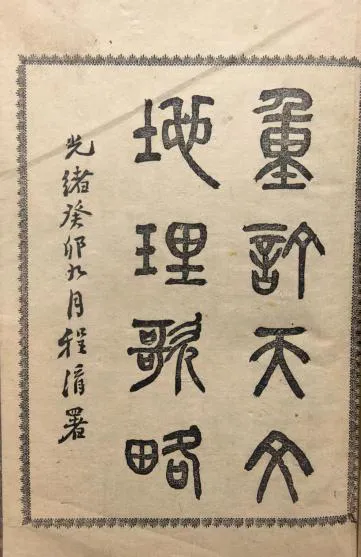 重訂天文
地理歌略
光緒癸卯九月程淯署